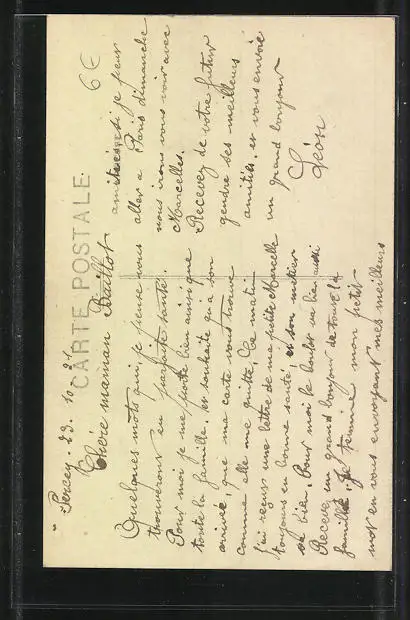 CARTE POSTALE
6€
Percey. 23. 10. 21
Chère maman Buillot
Quelques mots qui, je pense vous
trouverons en parfaite santé.
Pour moi je me porte bien ainsi que
toute la famille. et souhaite qu'a son
arrivée, que ma carte vous trouve
comme elle me quitte, Ce matin
j'ai reçus une lettre de ma petite Marcelle
toujours en bonne santé et son métier
va bien. Pour moi le boulot va bien aussi
Recevez un grand bonjour de toute la
famille. Je termine mon petit
mot en vous envoyant mes meilleurs
amitiés si je peux
aller a Paris dimanche
nous irons vous voir avec
Marcelles.
Recevez de votre futur
gendre ses meilleurs
amitiés. et vous envoie
un grand bonjour
Léon